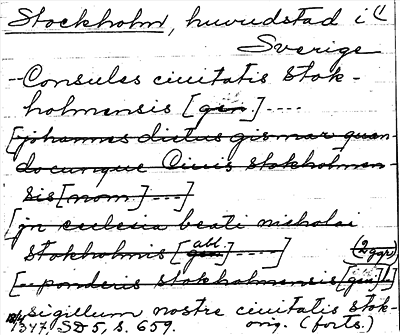 Stockholm, huvudstad i (1
Sverige
- Consules ciuitatis stok-
holmensis [gen] ....
[johannes dictus gismar quon-
docunque Ciuis stokholmen-
sis [nom] ....]
[jn ecclesia beati nicholai
stokholmis [gen abl ....]
(2 ggr)
[.. ponderis stokholmensis [gen]]
sigillum nostre ciuitatis stok-
1347. SD 5, s. 659. orig. (forts.)